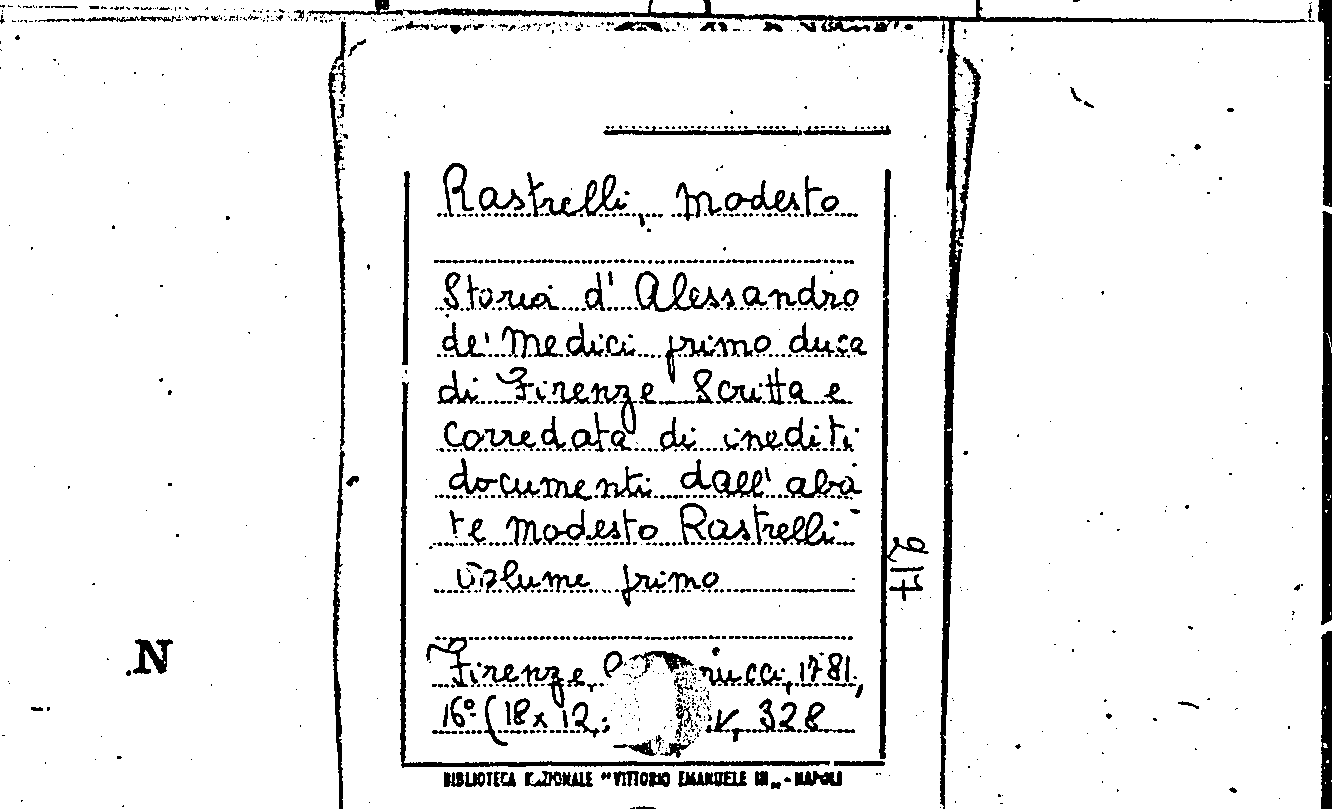 Rastrelli, Modesto
Storia d' Alessandro
de' Medici primo duca
di Firenze Scritta e
corredata di inediti
documenti dall' aba
te Modesto Rastrelli
volume primo
217
Firenze, 1781,
16º (18x12, 328
N
BIBLIOTECA NAZIONALE "VITTORIO EMANUELE III" - NAPOLI